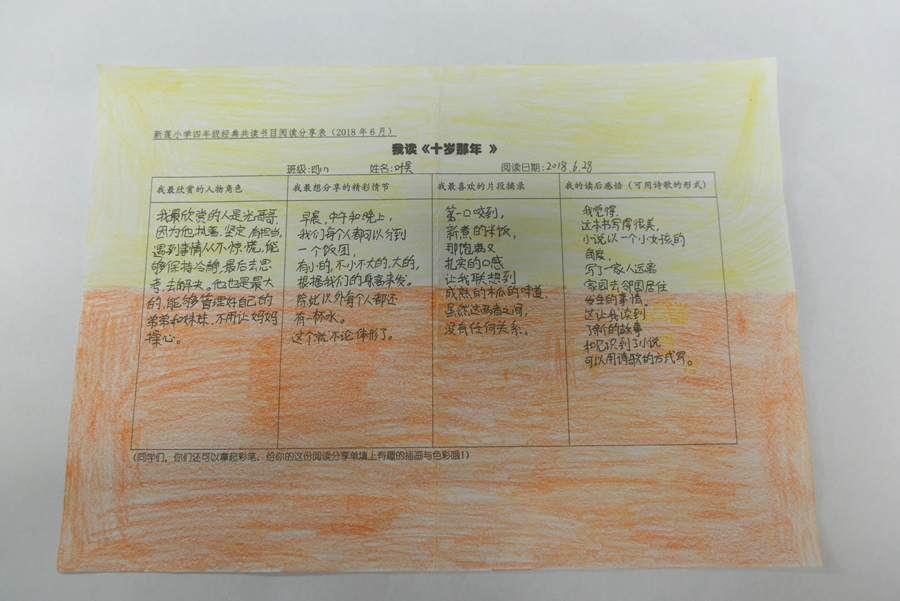 新莲小学四年级经典共读书目阅读分享表（2018年6月）
我读《十岁那年 》
班级: 姓名:叶昊 阅读日期:2018.6.28
我最欣赏的人物角色
我最欣赏的人是光哥哥,
因为他执着,坚定,有担当,
遇到事情从不惊慌,能
够保持冷静,最后去思
考,去解决。他也是最大
的,能够管理好自己的
弟弟和妹妹,不用让妈妈
操心。
我最想分享的精彩情节
早晨,中午和晚上,
我们每个人都可以分到
一个饭团,
有小的,不小不大的,大的,
根据我们的身高来发。
除此以外每个人都还
有一杯水。
这个就不论体形了。
我最喜欢的片段摘录
第一口咬到,
新煮的米饭,
那饱满又
扎实的口感
让我联想到
成熟的木瓜的味道,
虽然这两者之间,
没有任何关系。
我的读后感悟（可用诗歌的形式）
我觉得,
这本书写得很美,
小说以一个小女孩的
角度,
写了一家人远离
家园去邻国居住
发生的事情。
这让我读到
了新的故事
和认识到了小说
可以用诗歌的方式写。
(同学们，你们还可以拿起彩笔，给你的这份阅读分享单填上有趣的插画与色彩哦!)